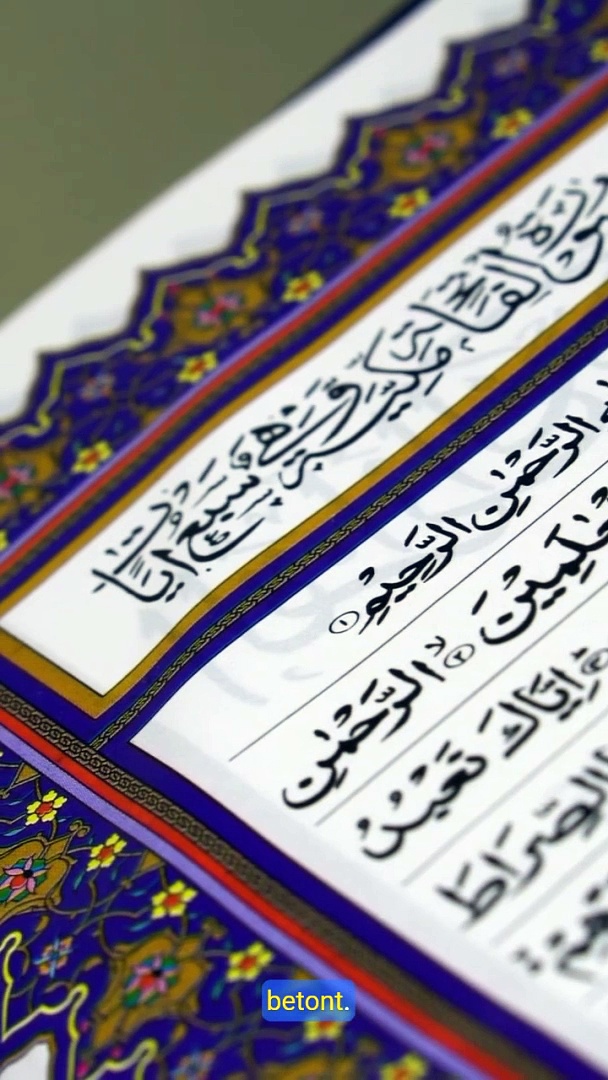 سورة الفاتحة مكية وهي سبع آيات
الرَّحْمٰنِ الرَّحِيْمِ ①
عٰلَمِيْنَ ② الرَّحْمٰنِ
اِيَّاكَ نَعْبُدُ
الصِّرَاطَ
betont.